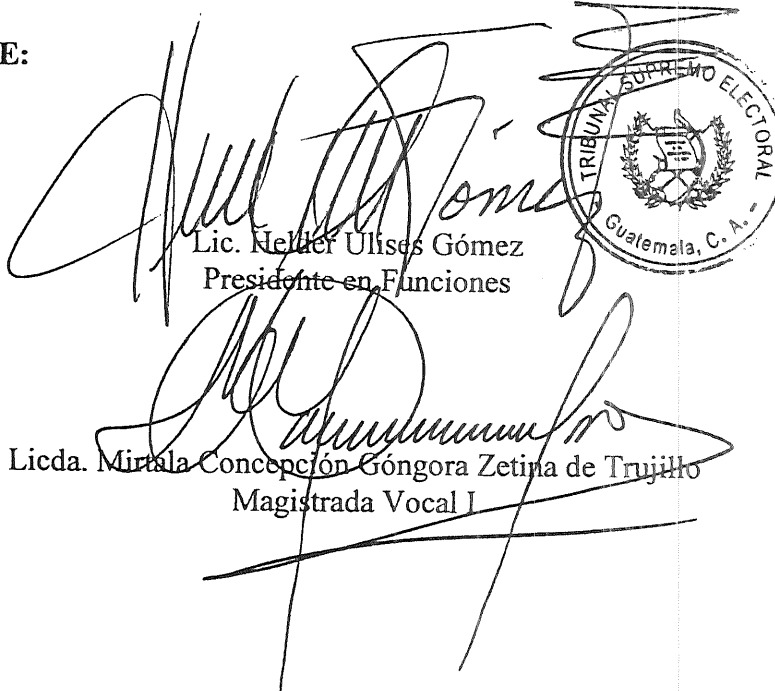 E:
TRIBUNAL SUPREMO ELECTORAL
Guatemala, C. A. -
Lic. Helder Ulises Gómez
Presidente en Funciones
Licda. Mirtala Concepción Góngora Zetina de Trujillo
Magistrada Vocal I